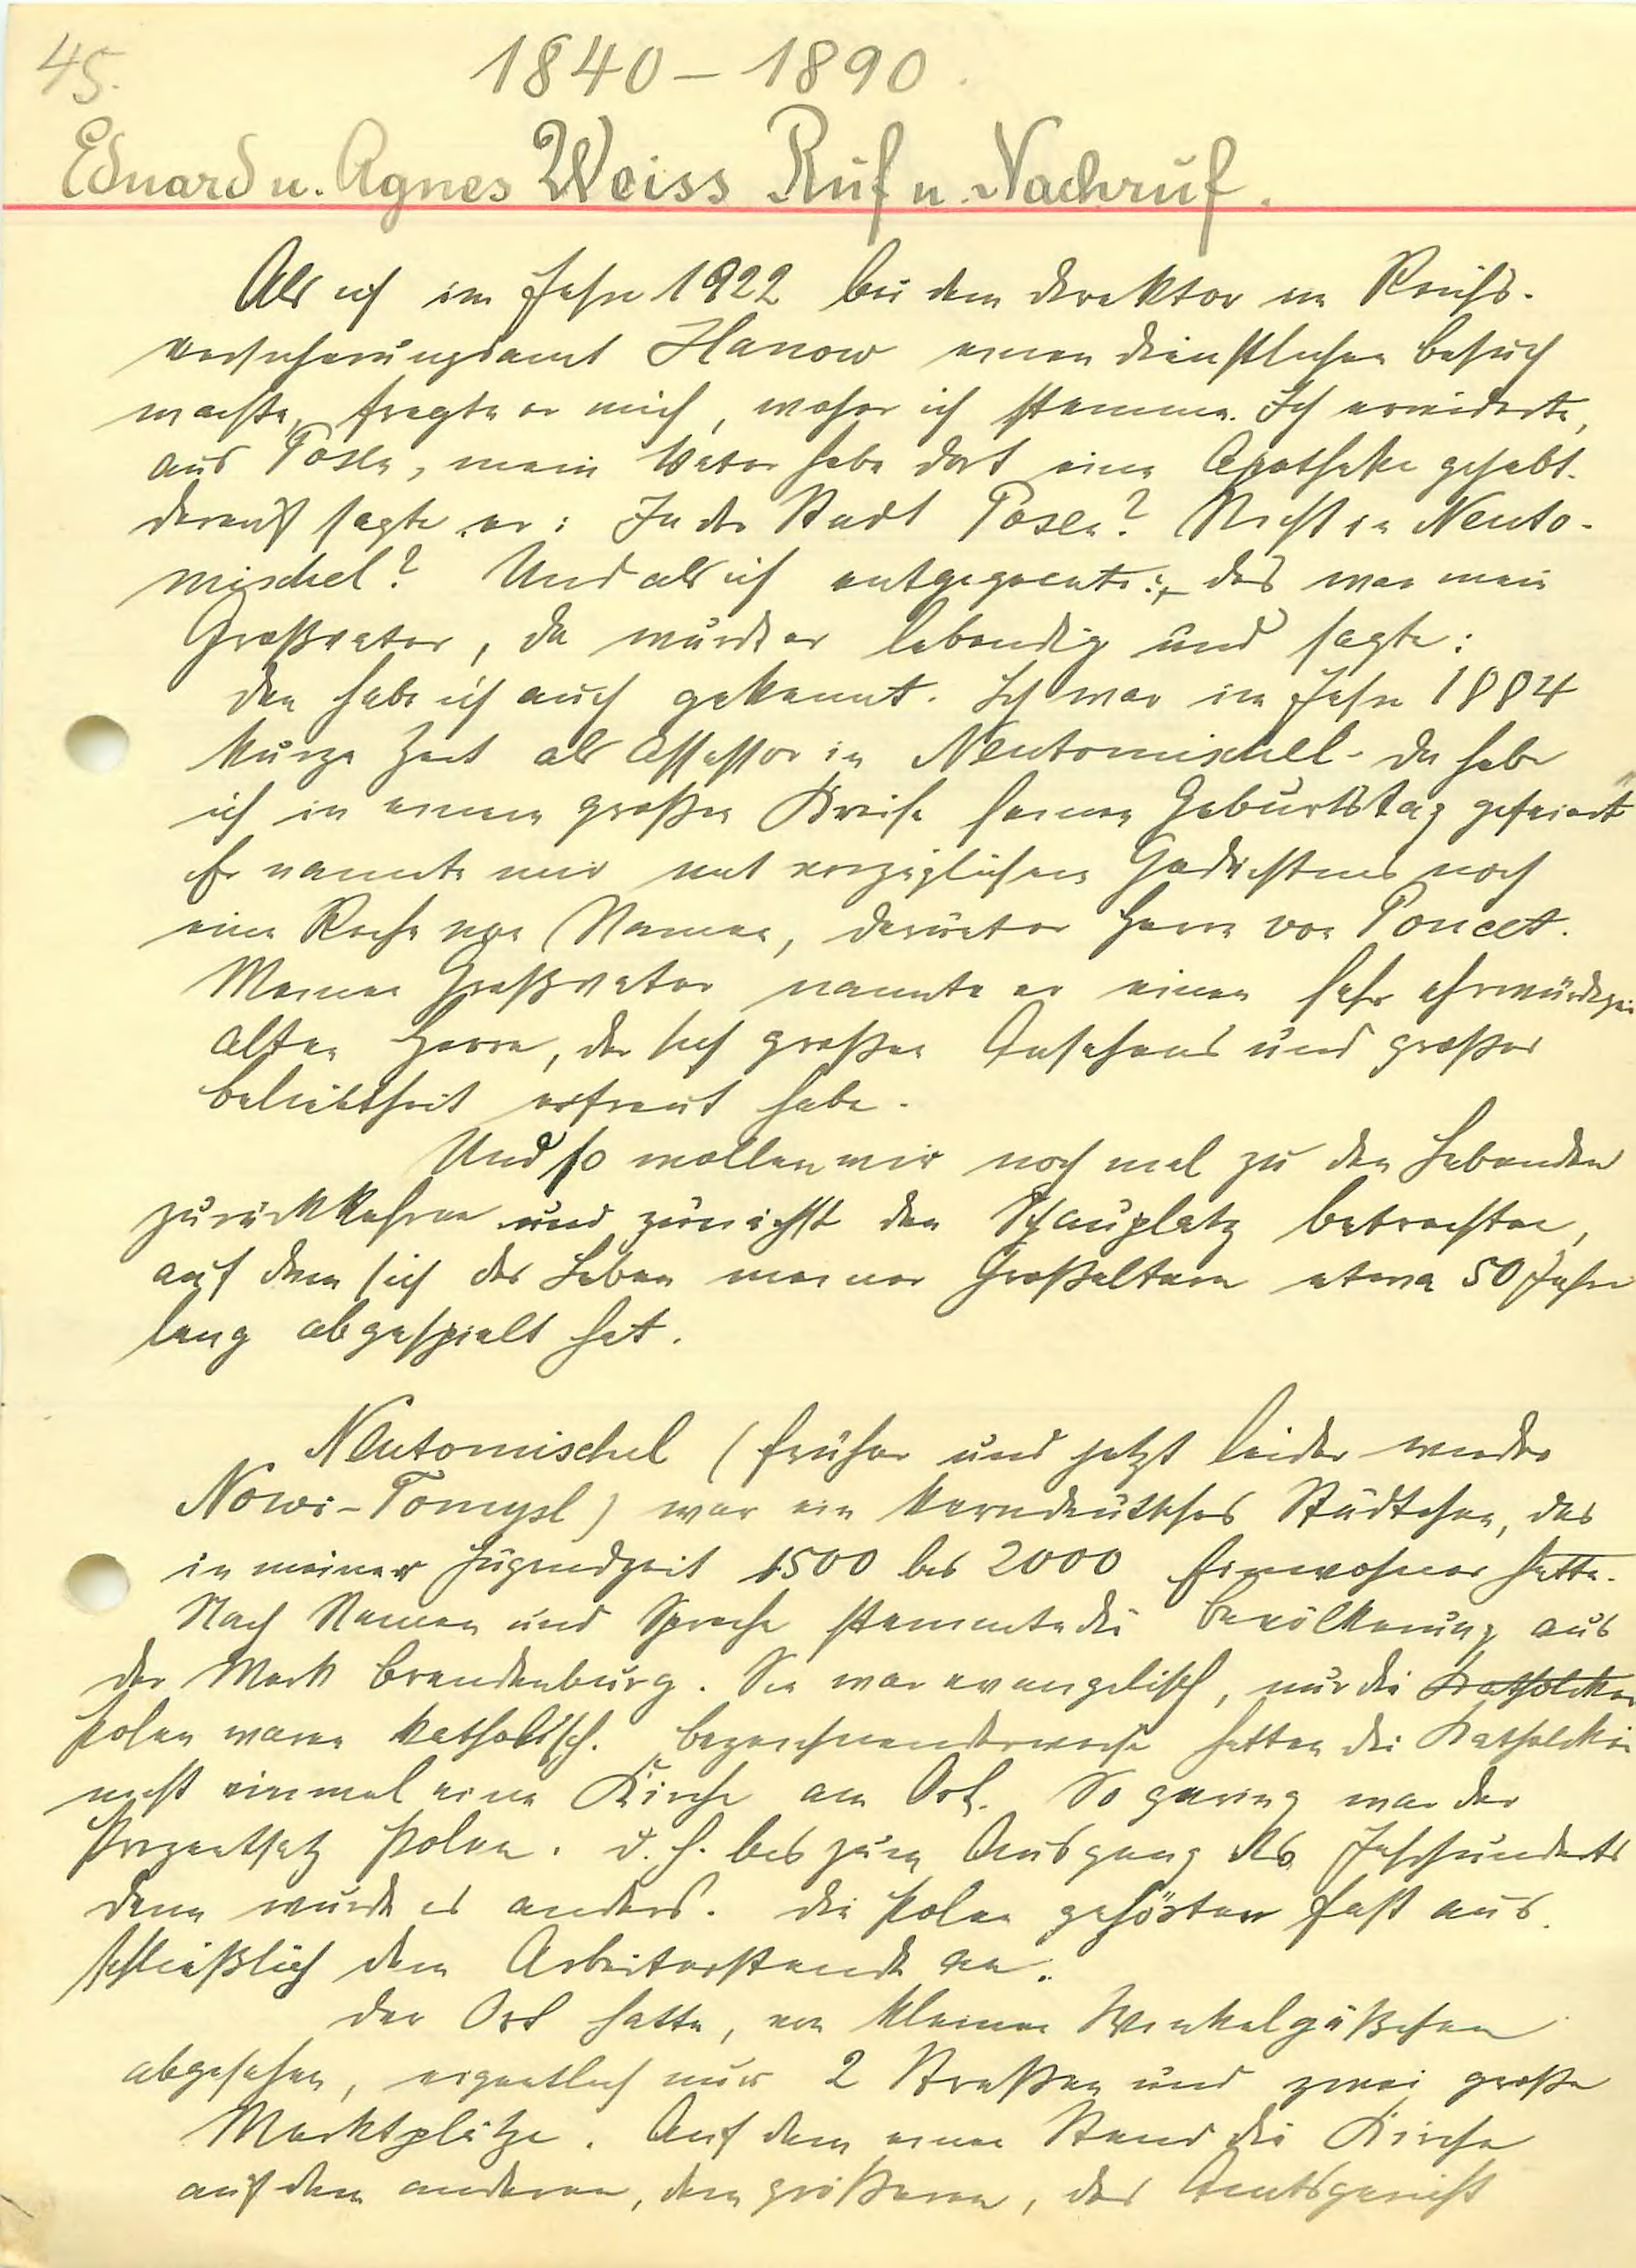 45.
1840 – 1890.
Eduard u. Agnes Weiss Ruf u. Nachruf.
Als ich im Jahre 1922 bei dem Direktor im Reichs-
versicherungsamt Hanow einen dienstlichen Besuch
machte, fragte er mich, woher ich stamme. Ich erwiderte,
aus Posen, mein Vater habe dort eine Apotheke gehabt.
Darauf sagte er: In der Stadt Posen? Nicht in Neuto-
mischel? Und als ich entgegnete: das war mein
Großvater, da wurde er lebendig und sagte:
Den habe ich auch gekannt. Ich war im Jahre 1884
kurze Zeit als Assessor in Neutomischel. Da habe
ich in einem großen Kreise seinen Geburtstag gefeiert"
Er nannte mir mit vorzüglichem Gedächtnis noch
eine Reihe von Namen, darunter Herrn von Poncet.
Meinen Großvater nannte er einen sehr ehrwürdigen
alten Herrn, der sich großen Ansehens und großer
Beliebtheit erfreut habe.
Und so wollen wir noch mal zu den Lebenden
zurückkehren und zunächst den Schauplatz betrachten,
auf dem sich das Leben meiner Großeltern etwa 50 Jahre
lang abgespielt hat.
Neutomischel (früher und jetzt leider wieder
Nowi-Tomysl) war ein kerndeutsches Städtchen, das
in meiner Jugendzeit 1500 bis 2000 Einwohner hatte.
Nach Namen und Sprache stammte die Bevölkerung aus
der Mark Brandenburg. Sie war evangelisch, nur die Katholiken
Polen waren katholisch. Bezeichnenderweise hatten die Katholiken
nicht einmal eine Kirche am Ort. So gering war der
Prozentsatz Polen. d. h. bis zum Ausgang des Jahrhunderts
dann wurde es anders. Die Polen gehörten fast aus-
schließlich dem Arbeiterstande an.
Der Ort hatte, von kleinen Winkelgäßchen
abgesehen, eigentlich nur 2 Straßen und zwei große
Marktplätze. Auf dem einen stand die Kirche
auf dem anderen, dem größeren, das Amtsgericht